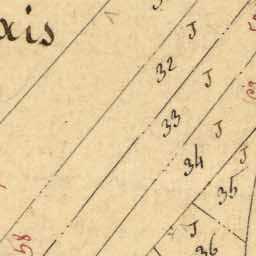 xis
J
32
J
33
J
34
J
35
J
36
58